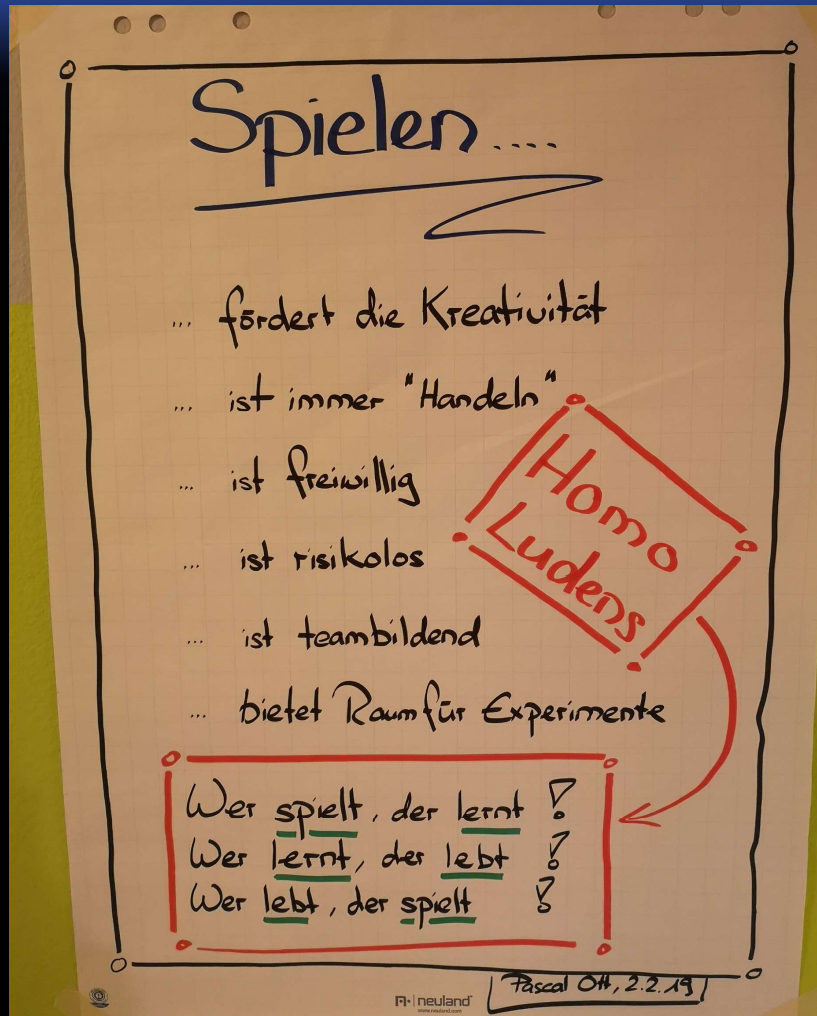 Spielen....
... fördert die Kreativität
... ist immer "Handeln"
... ist freiwillig
... ist risikolos
... ist teambildend
... bietet Raum für Experimente
Homo
Ludens
Wer spielt, der lernt!
Wer lernt, der lebt!
Wer lebt, der spielt!
Pascal Ott, 2.2.19
neuland
www.neuland.com